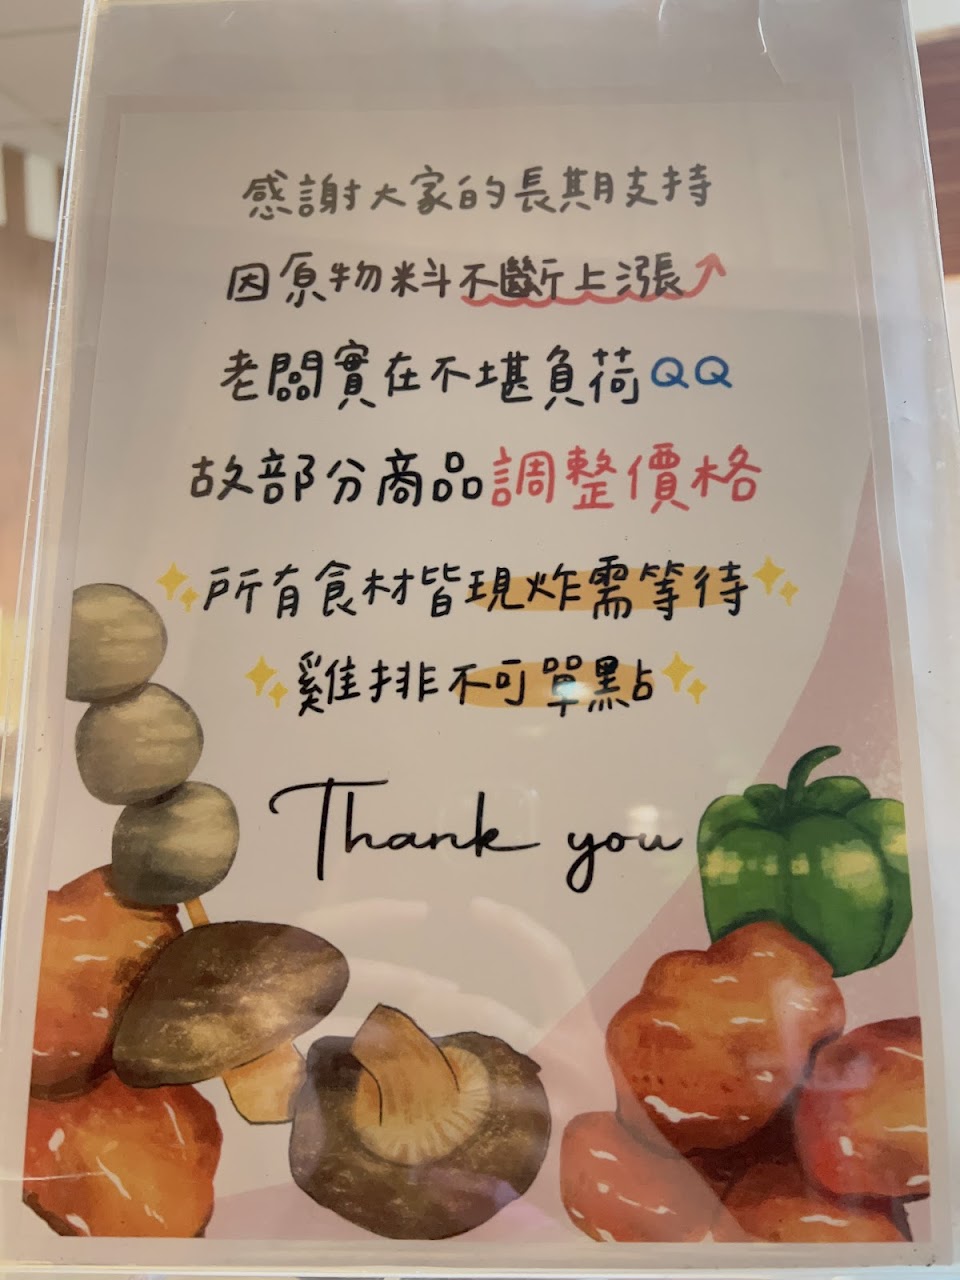 感謝大家的長期支持
因原物料不斷上漲
老闆實在不堪負荷QQ
故部分商品調整價格
所有食材皆現炸需等待
雞排不可單點
Thank you